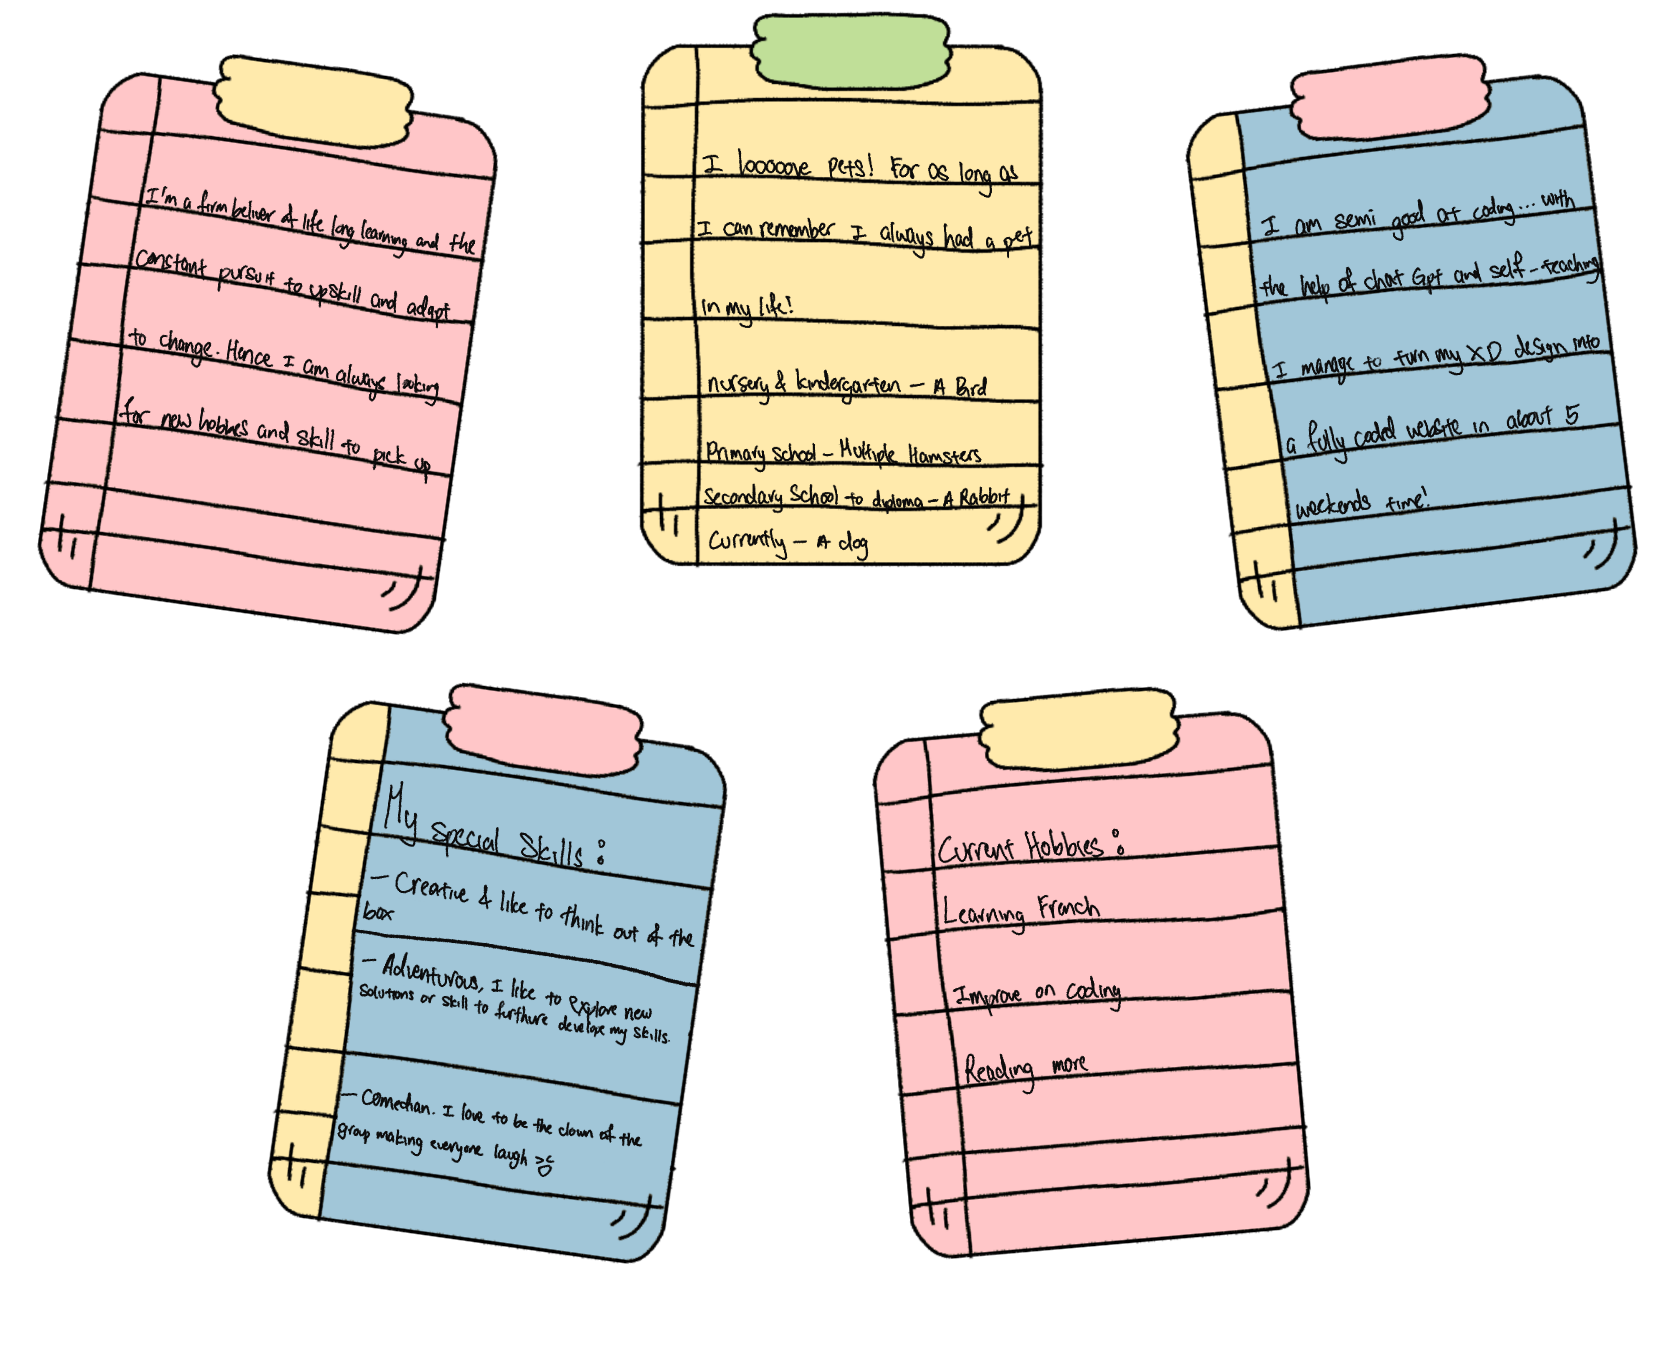 I'm a firm beliver of life long learning and the
constant pursuit to upskill and adapt
to change. Hence I am always looking
for new hobbies and skill to pick up
I looooove pets! For as long as
I can remember I always had a pet
in my life!
nursery & kindergarten - A Bird
Primary school - Multiple Hamsters
Secondary School to diploma - A Rabbit
Currently - A dog
I am semi good at coding... with
the help of chat Gpt and self-teaching
I manage to turn my XD design into
a fully coded website in about 5
weekends time!
My special skills:
- Creative & like to think out of the
box
- Adventurous, I like to explore new
solutions or skill to furthure develope my skills.
- Comedian. I love to be the clown of the
group making everyone laugh
Current Hobbies:
Learning French
Improve on coding
Reading more